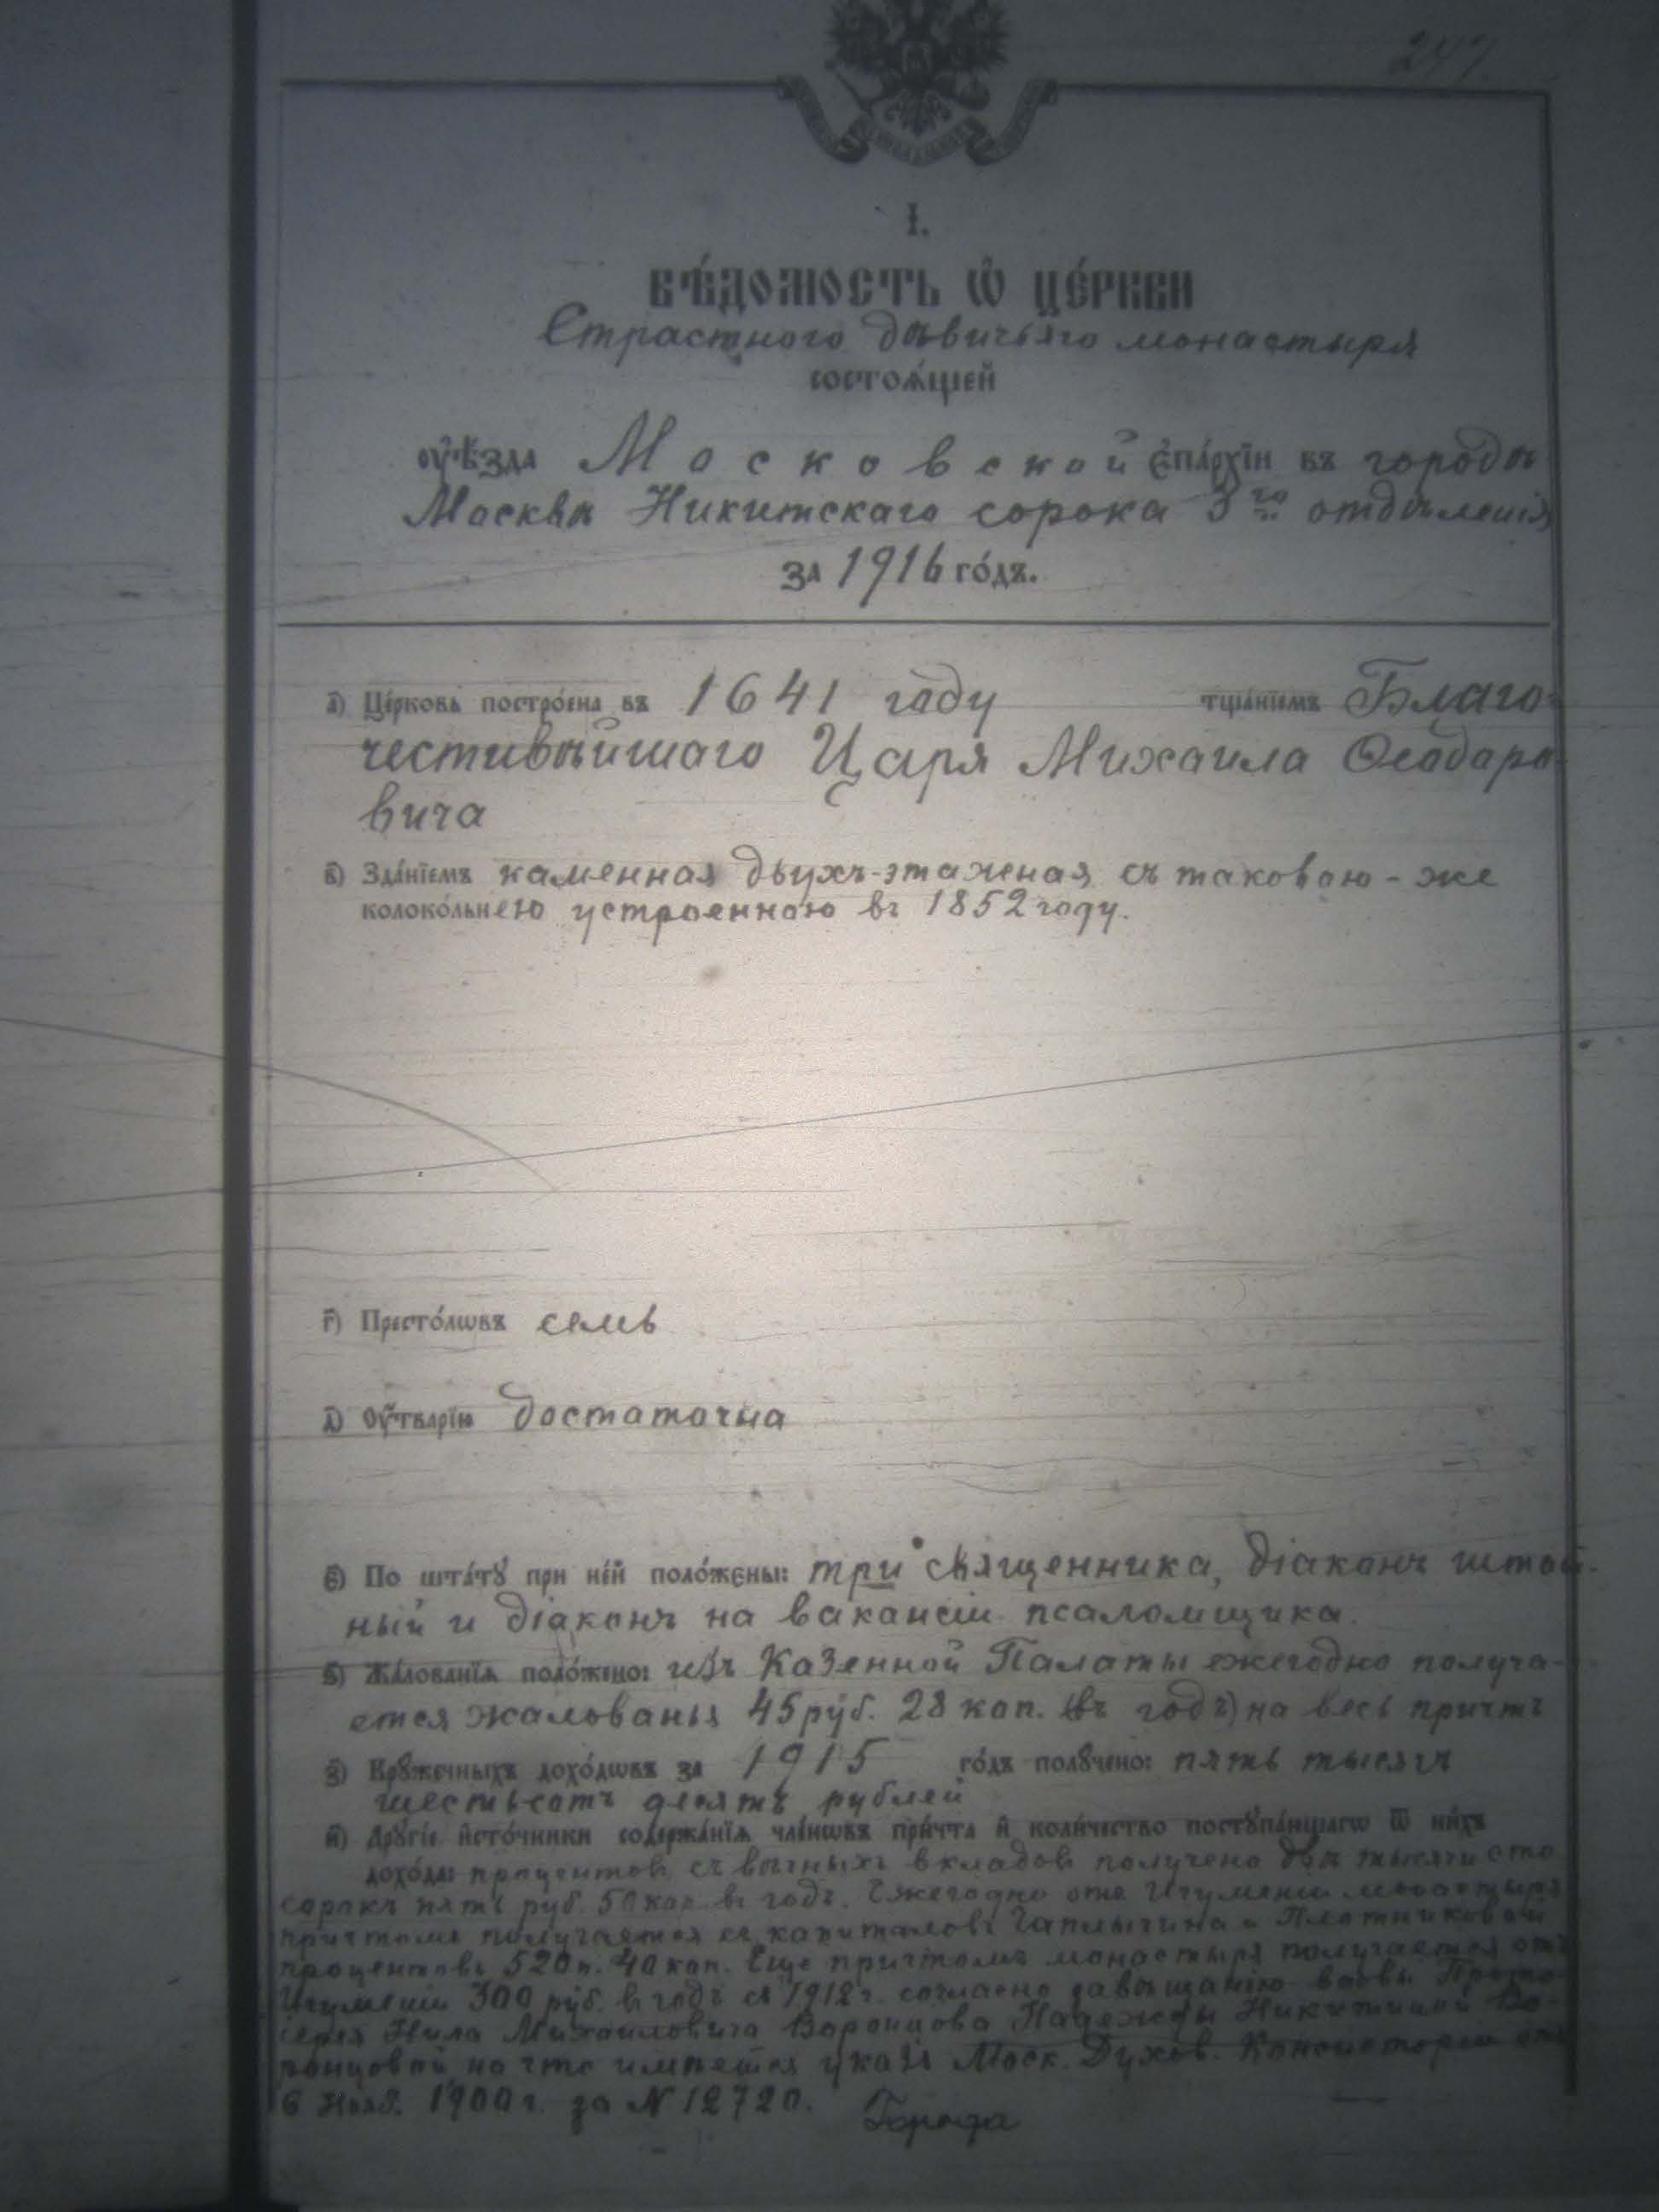 247
І.
ВѢ́ДОМОСТЬ Ѡ҆ ЦЕ́РКВИ
Страстного дѣвичьяго монастыря
состоѧ́щей
ᲂу҆ѣ́зда Московской є҆па́рхїи въ городѣ
Москвѣ Никитскаго сорока 3го отдѣленія
за 1916 го́дъ.
а҃) Це́рковь постро́ена въ 1641 году тща́нїемъ Благо-
честивѣйшаго Царя Михаила Ѳеодоро-
вича
в҃) Зда́нїемъ каменная двухъ-этажная съ таковою-же
колоко́льнею устроенною въ 1852 году.
г҃) Престо́лѡвъ семь
д҃) Оу҆́тварїю достаточна
є҃) По шта́тꙋ при не́й поло́жены: три священника, діаконъ штат-
ный и діаконъ на вакансіи псаломщика.
ѕ҃) Жа́лованїѧ поло́жено: изъ Казенной Палаты ежегодно получа-
ется жалованья 45 руб. 28 коп. (въ годъ) на весь причтъ
з҃) Крꙋ́жечныхъ дохо́дѡвъ за 1915 го́дъ полꙋ́чено: пять тысячъ
шестьсотъ десять рублей
и҃) Дрꙋгі́е и҆сто́чники содержа́нїѧ чле́нѡвъ при́чта и҆ коли́чество постꙋпа́ющагѡ ѿ ни́хъ
дохо́да: процентовъ съ вѣчныхъ вкладовъ получено двѣ тысячи сто
сорокъ пять руб. 50 коп. въ годъ. Ежегодно отъ Игуменіи монастыря
причтомъ получается съ капиталовъ Чаплыгина и Плотниковой
процентовъ 520 р. 40 коп. Еще причтомъ монастыря получается отъ
Игуменіи 300 руб. въ годъ съ 1912 г. согласно завѣщанію вдовы Прото-
іерея Нила Михаиловича Воронцова Надежды Никитишны Во-
ронцовой на что имѣется указъ Моск. Духов. Консисторіи отъ
6 Нояб. 1900 г. за № 12720.